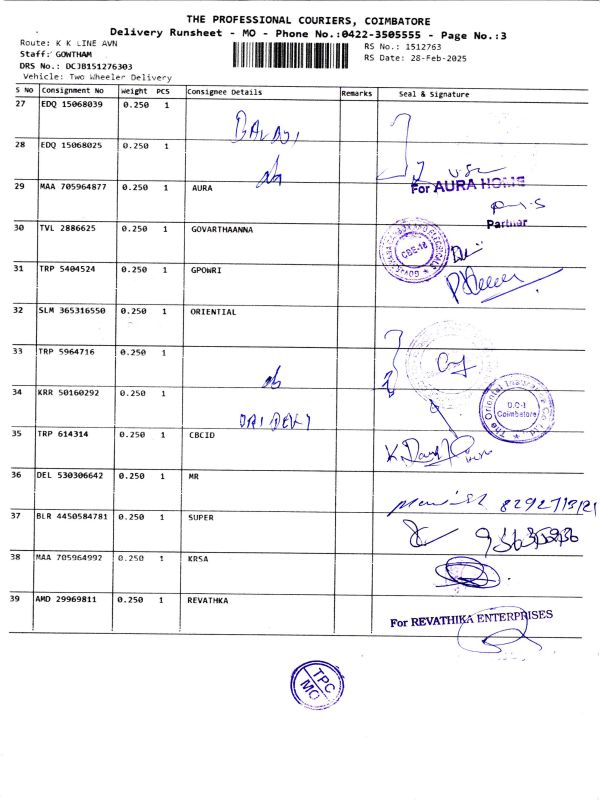 THE PROFESSIONAL COURIERS, COIMBATORE
Delivery Runsheet - MO - Phone No.:0422-3505555 - Page No.:3
Route: K K LINE AVN
RS No.: 1512763
Staff: GOWTHAM
RS Date: 28-Feb-2025
DRS No.: DCJB151276303
Vehicle: Two Wheeler Delivery
S No Consignment No Weight PCS Consignee Details Remarks Seal & Signature
27 EDQ 15068039 0.250 1
BALAJI
28 EDQ 15068025 0.250 1
29 MAA 705964877 0.250 1 AURA
For AURA HOME
Partner
30 TVL 2886625 0.250 1 GOVARTHAANNA
CBE-18
31 TRP 5404524 0.250 1 GPOWRI
32 SLM 365316550 0.250 1 ORIENTIAL
33 TRP 5964716 0.250 1
34 KRR 50160292 0.250 1
The Oriental Insurance Co. Ltd.
D.C-1
Coimbatore
SRI DEVI
35 TRP 614314 0.250 1 CBCID
36 DEL 530306642 0.250 1 MR
37 BLR 4450584781 0.250 1 SUPER
38 MAA 705964992 0.250 1 KRSA
39 AMD 29969811 0.250 1 REVATHKA
For REVATHIKA ENTERPRISES
TPC
MO